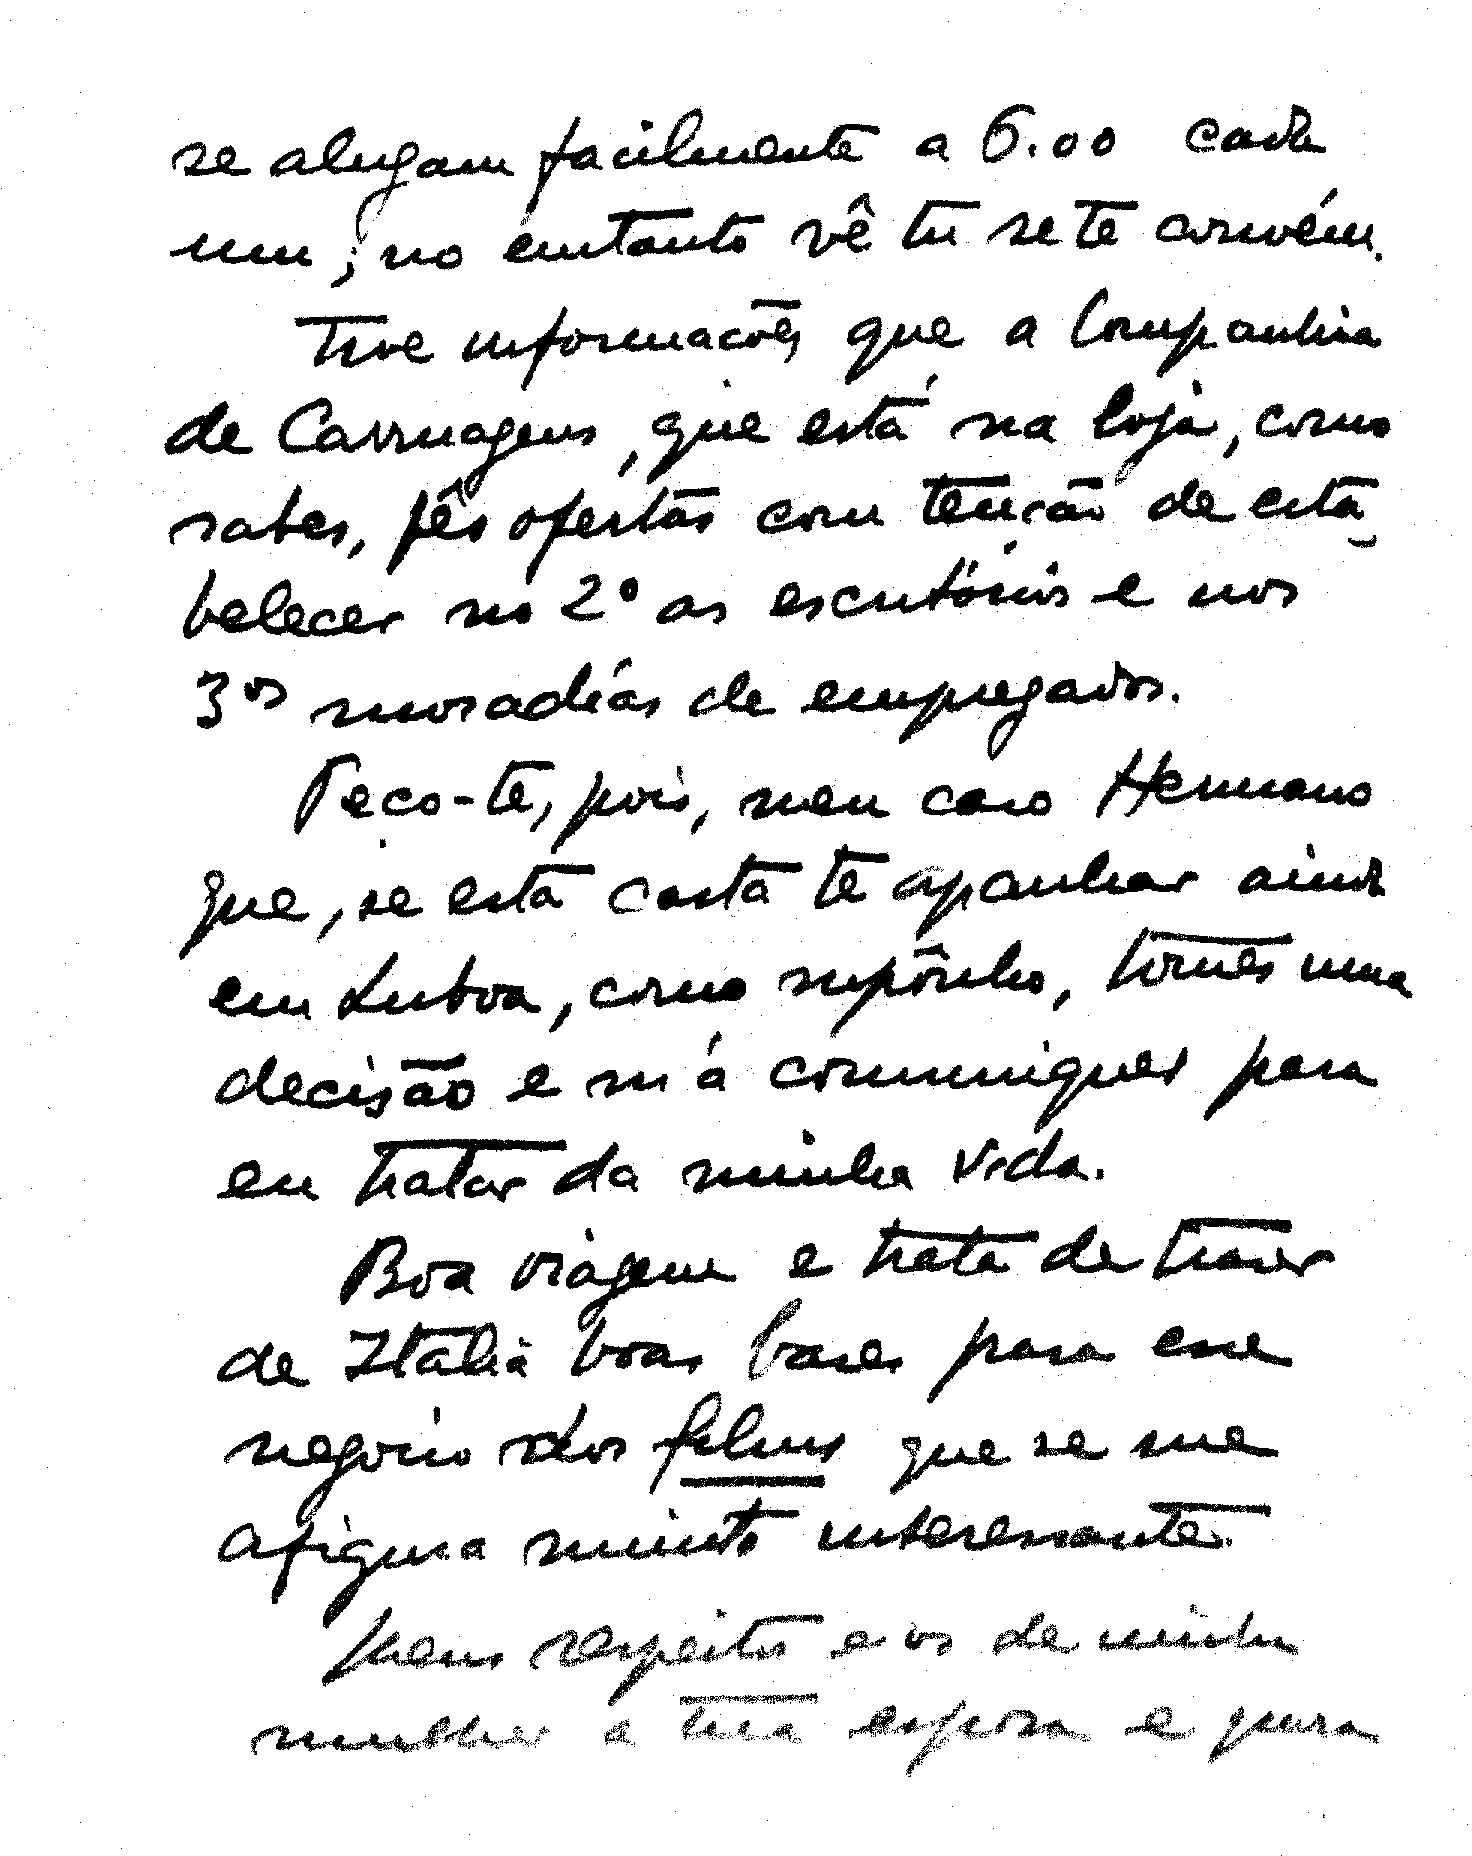 se alugam facilmente a 6.00 cada
um; no emtanto vê tu se te convém.
Tive informações que a Companhia
de Carruagens, que está na loja, como
sabes, fês ofertas com tenção de esta
belecer no 2º os escritórios e nos
3os moradias de empregados.
Peço-te, pois, meu caro Hermano
que, se esta carta te apanhar ainda
em Lisboa, como supônho, tomes uma
decisão e m'a communiques para
eu tratar da minha vida.
Boa viagem e trata de trazer
de Italia boas bases para esse
negocio dos films que se me
afigura muito interessante.
Meus respeitos e os de minha
mulher a tua esposa e para